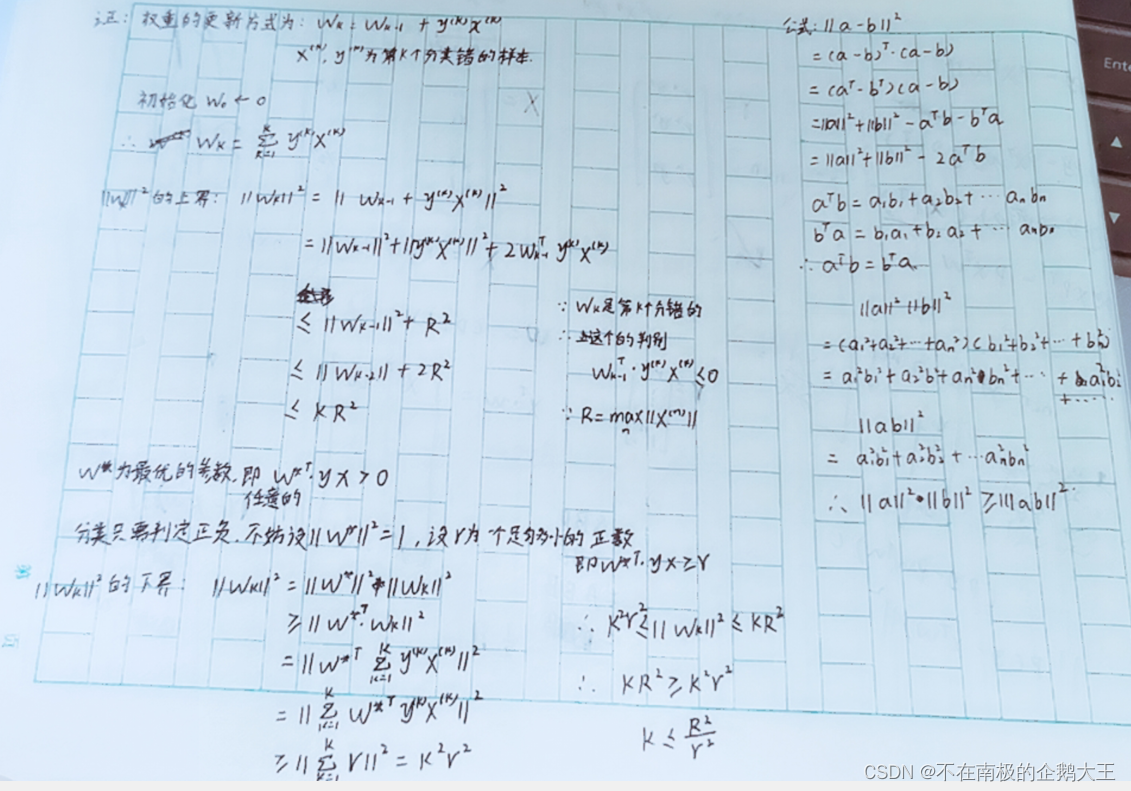 证: 权重的更新方式为: Wk = Wk-1 + y^(k) x^(k)
x^(k), y^(k) 为第k个分类错的样本.
初始化 W0 ← 0
∴ Wk = Σ_{k=1}^{K} y^(k) x^(k)
||Wk||² 的上界: ||Wk||² = || Wk-1 + y^(k) x^(k) ||²
= ||Wk-1||² + ||y^(k) x^(k)||² + 2 Wk-1^T y^(k) x^(k)
≤ ||Wk-1||² + R²
≤ ||Wk-2|| + 2R²
≤ KR²
∵ Wk是第k个分错的
∴ 上这个的判别
Wk-1^T · y^(k) x^(k) ≤ 0
∵ R = max_n ||x^(n)||
W* 为最优的参数, 即 W*^T · yx > 0
任意的
分类只需判定正负, 不妨设 ||W*||² = 1, 设 r 为一个足够小的正数
即 W*^T · yx ≥ r
||Wk||² 的下界: ||Wk||² = ||W*||² · ||Wk||²
≥ || W*^T · Wk ||²
= || W*^T Σ_{k=1}^{K} y^(k) x^(k) ||²
= || Σ_{k=1}^{K} W*^T y^(k) x^(k) ||²
≥ || Σ_{k=1}^{K} r ||² = K²r²
∴ K²r² ≤ ||Wk||² ≤ KR²
∴ KR² ≥ K²r²
K ≤ R²/r²
公式: ||a-b||²
= (a-b)^T · (a-b)
= (a^T - b^T)(a-b)
= ||a||² + ||b||² - a^T b - b^T a
= ||a||² + ||b||² - 2a^T b
a^T b = a1b1 + a2b2 + ··· anbn
b^T a = b1a1 + b2a2 + ··· anbn
∴ a^T b = b^T a
||a||² ||b||²
= (a1² + a2² + ··· + an²)(b1² + b2² + ··· + bn²)
= a1²b1² + a2²b2² + an² bn² + ··· + a1²b2²
+ ······
||ab||²
= a1²b1² + a2²b2² + ··· an²bn²
∴ ||a||² · ||b||² ≥ ||ab||²
Ente
CSDN @不在南极的企鹅大王